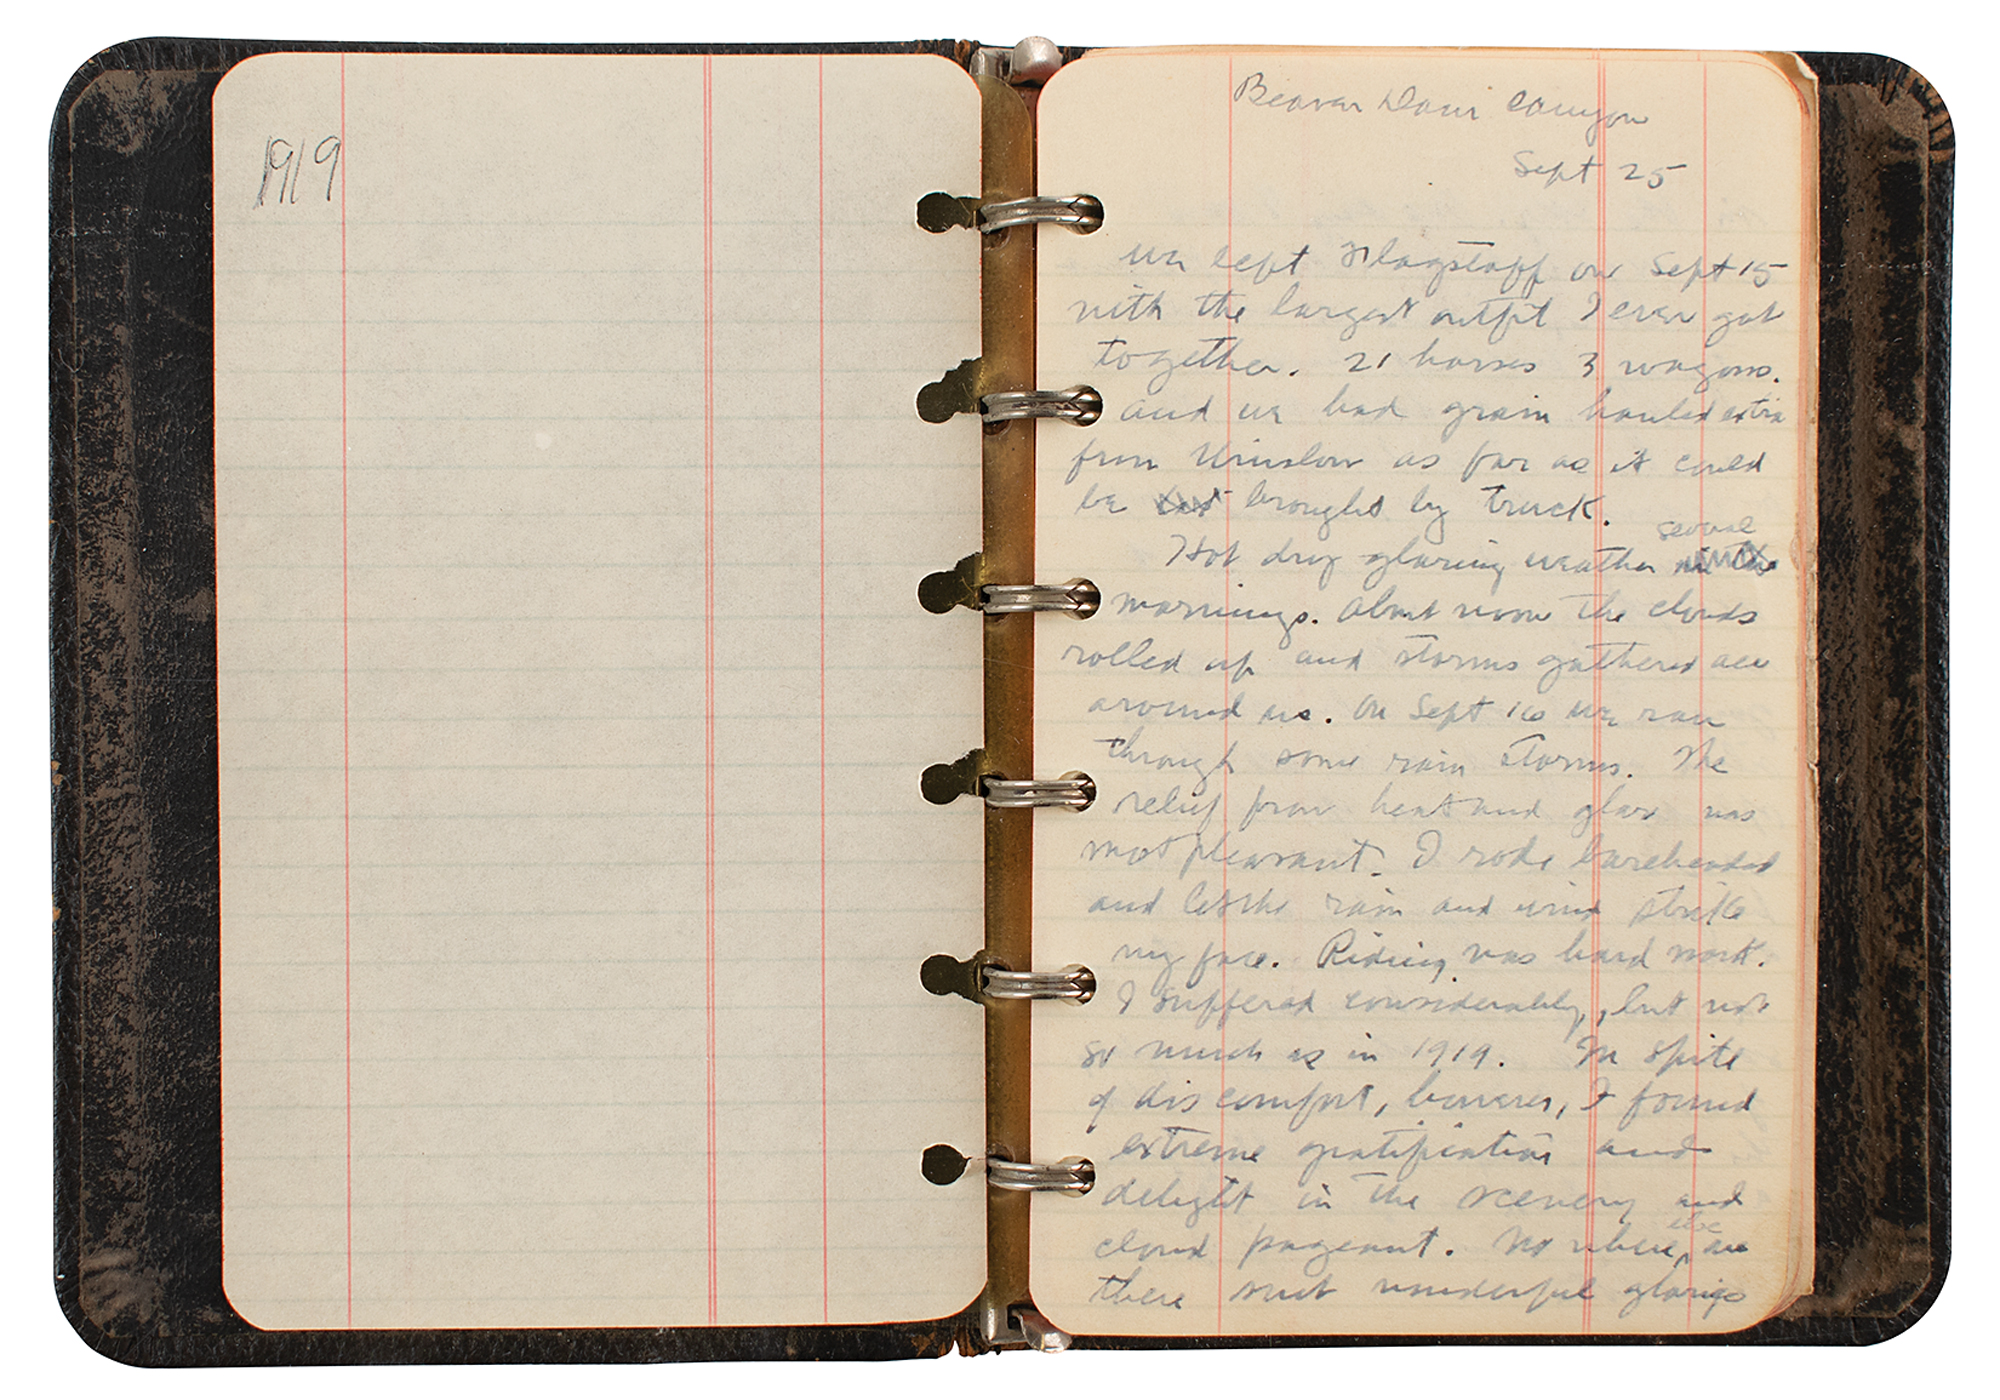 1919
Beaver Dam Canyon
Sept 25
We left Flagstaff on Sept 15
with the largest outfit I ever got
together. 21 horses 3 wagons.
and we had grain hauled extra
from Winslow as far as it could
be brought by truck.
several
Hot dry glaring weather
mornings. About noon the clouds
rolled up and storms gathered all
around us. On Sept 16 we ran
through some rain storms. The
relief from heat and glare was
most pleasant. I rode bareheaded
and let the rain and wind strike
my face. Riding was hard work.
I suffered considerably, but not
so much as in 1919. In spite
of discomfort, however, I found
extreme gratification and
delight in the scenery and
else
cloud pageant. No where are
there such wonderful